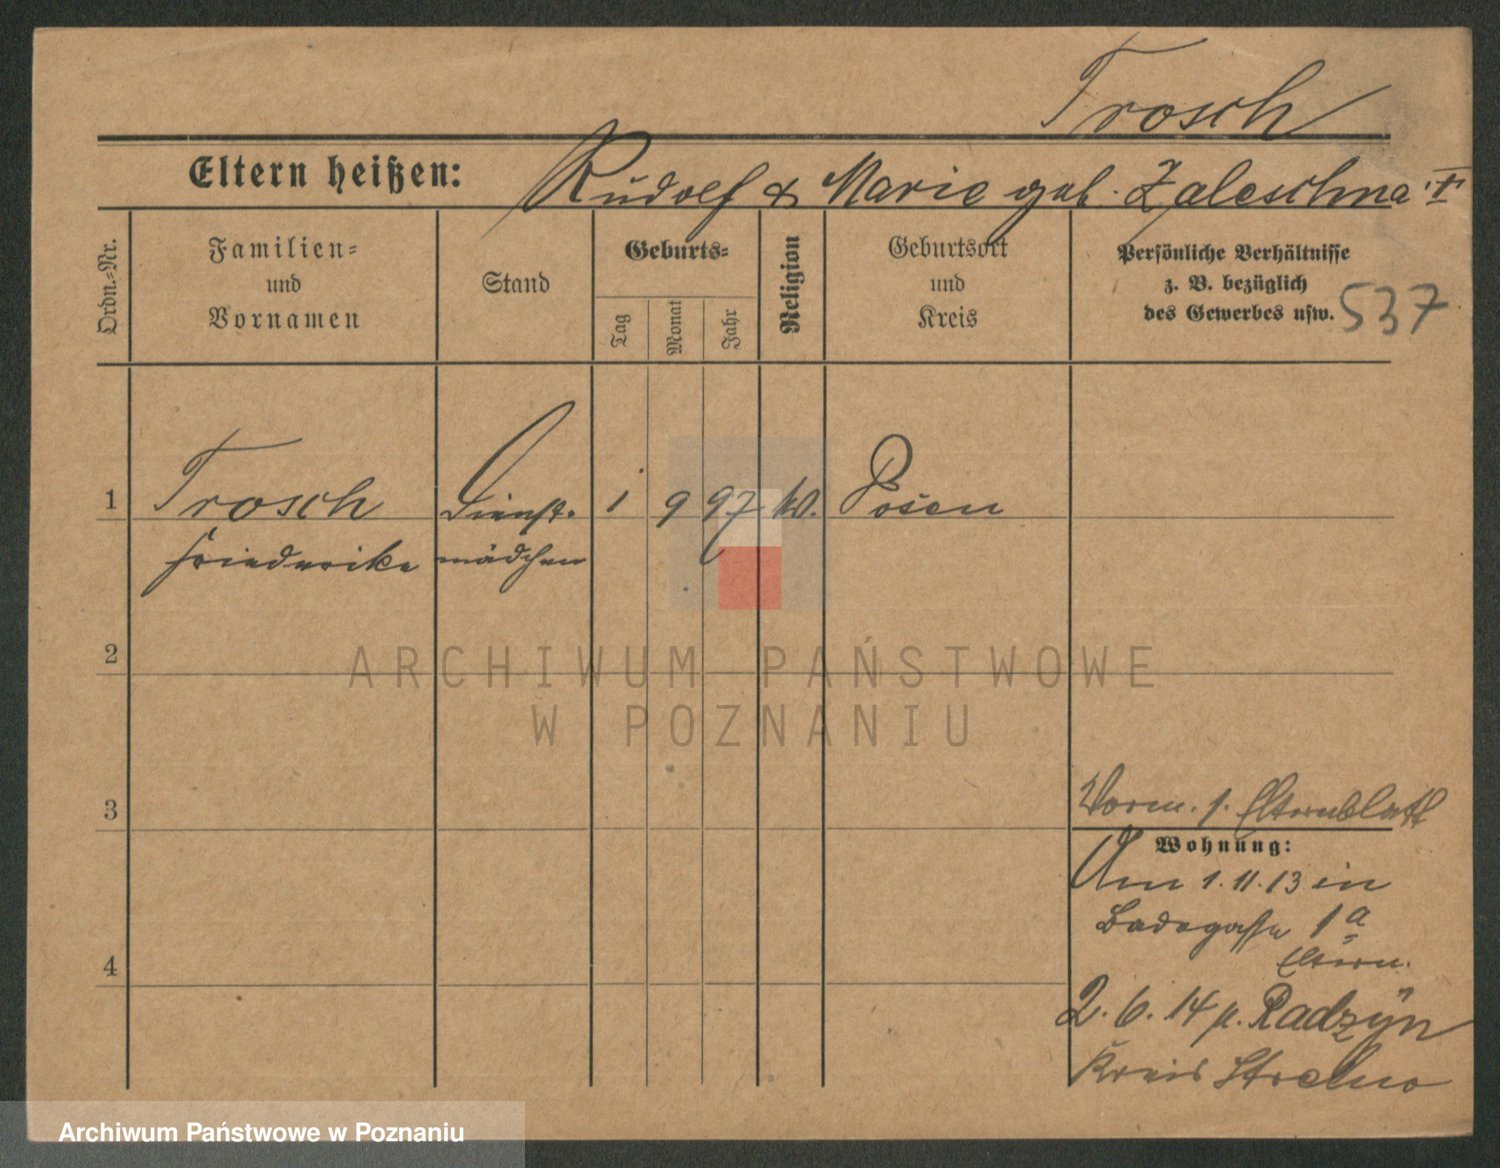 Trosch
Eltern heißen: Rudolf & Marie geb. Zaleschna
Ordn.=Nr.
Familien=
und
Vornamen
Stand
Geburts=
Tag
Monat
Jahr
Religion
Geburtsort
und
Kreis
Persönliche Verhältnisse
z. B. bezüglich
des Gewerbes usw. 537
1 Trosch Dienst= 1 9 97 Posen
Friederike mädchen
2
ARCHIWUM PAŃSTWOWE
W POZNANIU
3 Elternblatt
Wohnung:
Am 1.11.13 in
Badegasse 1a
Eltern.
4
2.6.14 n. Radzyn
Kreis Strelno
Archiwum Państwowe w Poznaniu